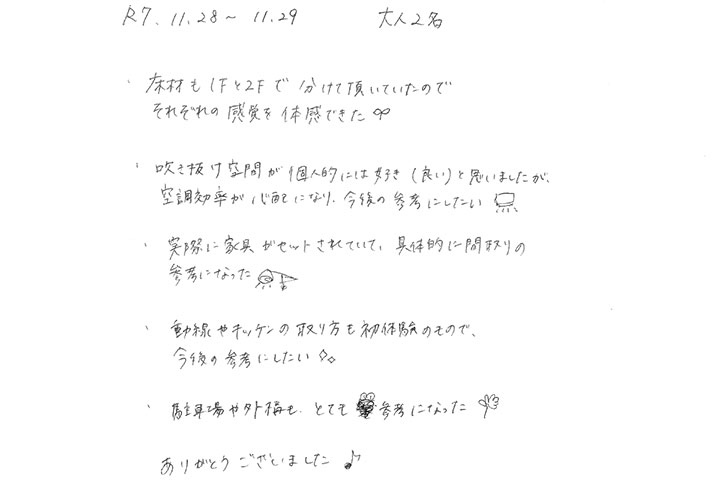 R7.11.28～11.29 大人2名
・床材も1Fと2Fで分けて頂いていたので
それぞれの感覚を体感できた
・吹き抜け空間が個人的には好き(良い)と思いましたが、
空調効率が心配になり、今後の参考にしたい
・実際に家具がセットされていて、具体的に間取りの
参考になった
・動線やキッチンの取り方も初体験のもので、
今後の参考にしたい
・駐車場や外構も、とても参考になった
ありがとうございました♪